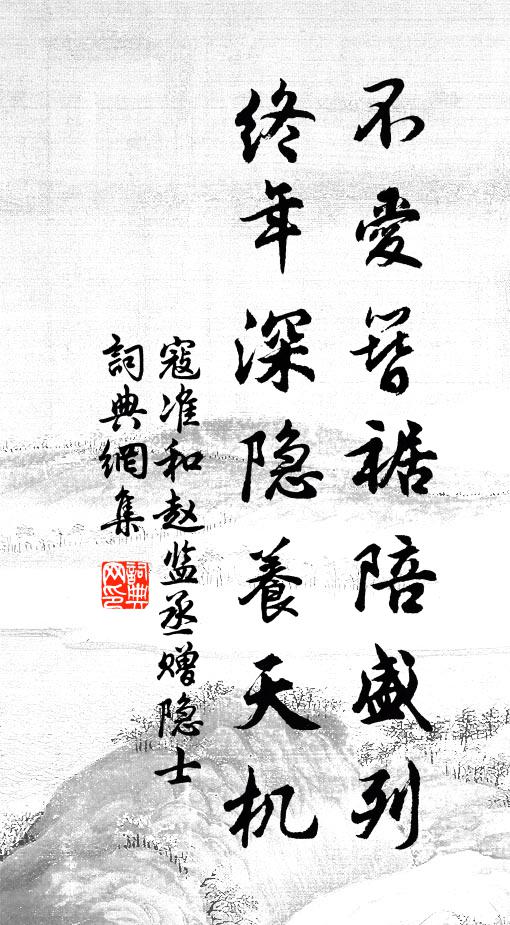 不愛簪裾陪盛列
终年深隐養天机
寇准和赵监丞赠隐士
詞典網集
詞典
网印